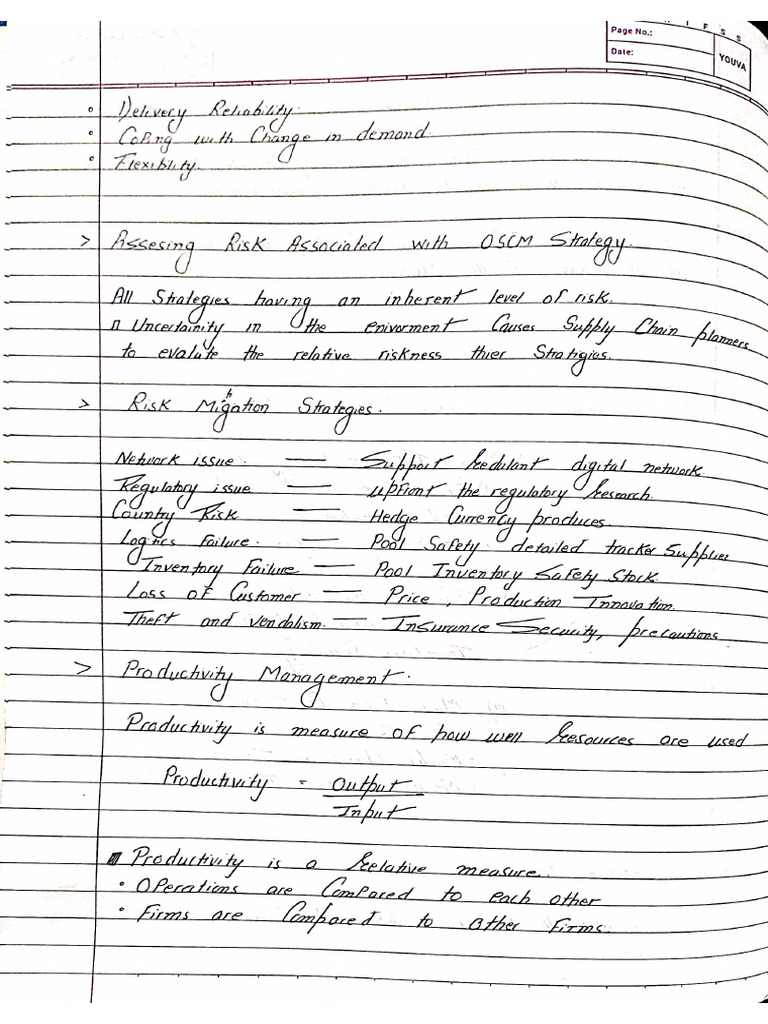 Page No.:
Date:
YOUVA
• Delivery Reliability.
• Coping with Change in demand.
• Flexiblity.
> Assesing Risk Associated with OSCM Strategy.
All Strategies having an inherent level of risk.
Uncertainity in the enivorment Causes Supply Chain planners
to evalute the relative riskness thier Stratigies.
> Risk Migation Strategies.
Network issue. — Support Redulant digital network.
Regulatory issue — upfront the regulatory Research.
Country Risk — Hedge Currency produces
Logtics Failure. — Pool Safety detailed tracker Supplier
Inventory Failure — Pool Inventory Safety Stock.
Loss of Customer — Price, Production Innovation.
Theft and vendolism. — Insurance Security, precautions.
> Productivity Management.
Productivity is measure of how well Resources are used
Productivity = Output
Input
Productivity is a Relative measure.
• Operations are Compared to each other
• Firms are Compared to other Firms.